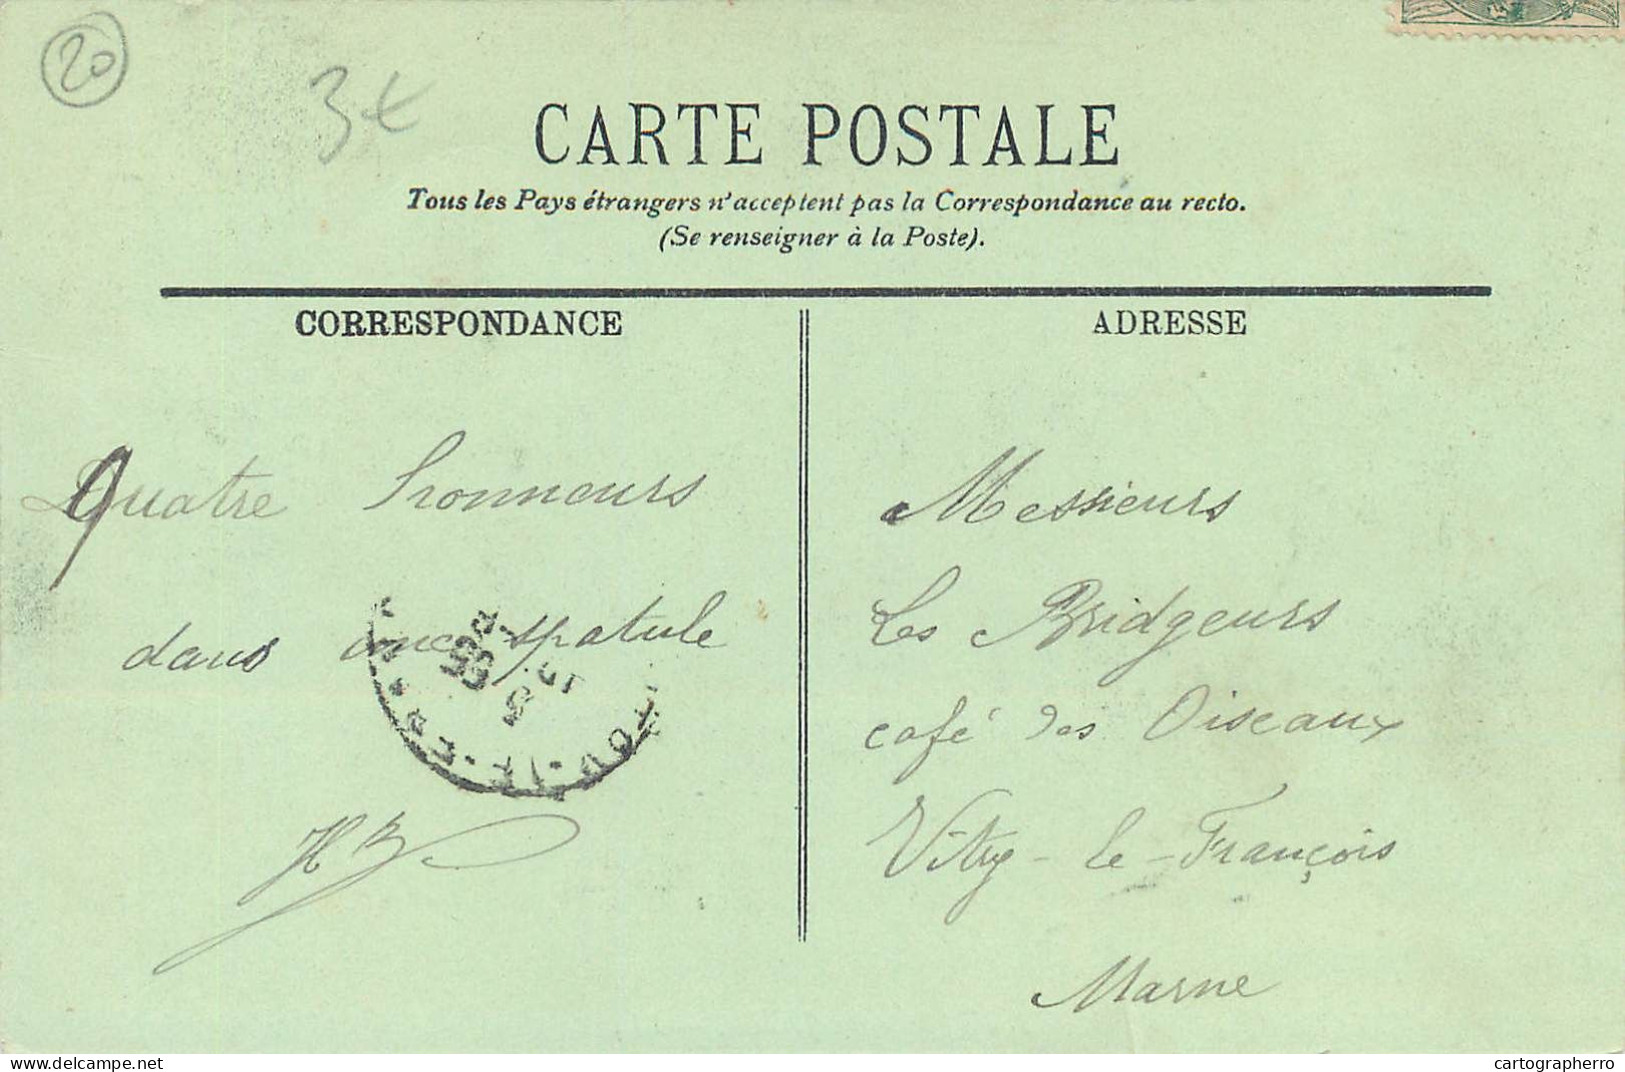 20
3€
CARTE POSTALE
Tous les Pays étrangers n'acceptent pas la Correspondance au recto.
(Se renseigner à la Poste).
CORRESPONDANCE
ADRESSE
Quatre honneurs
dans une spatule
HB
Messieurs
Les Bridgeurs
café des Oiseaux
Vitry-le-François
Marne
delcampe.net
cartographerro